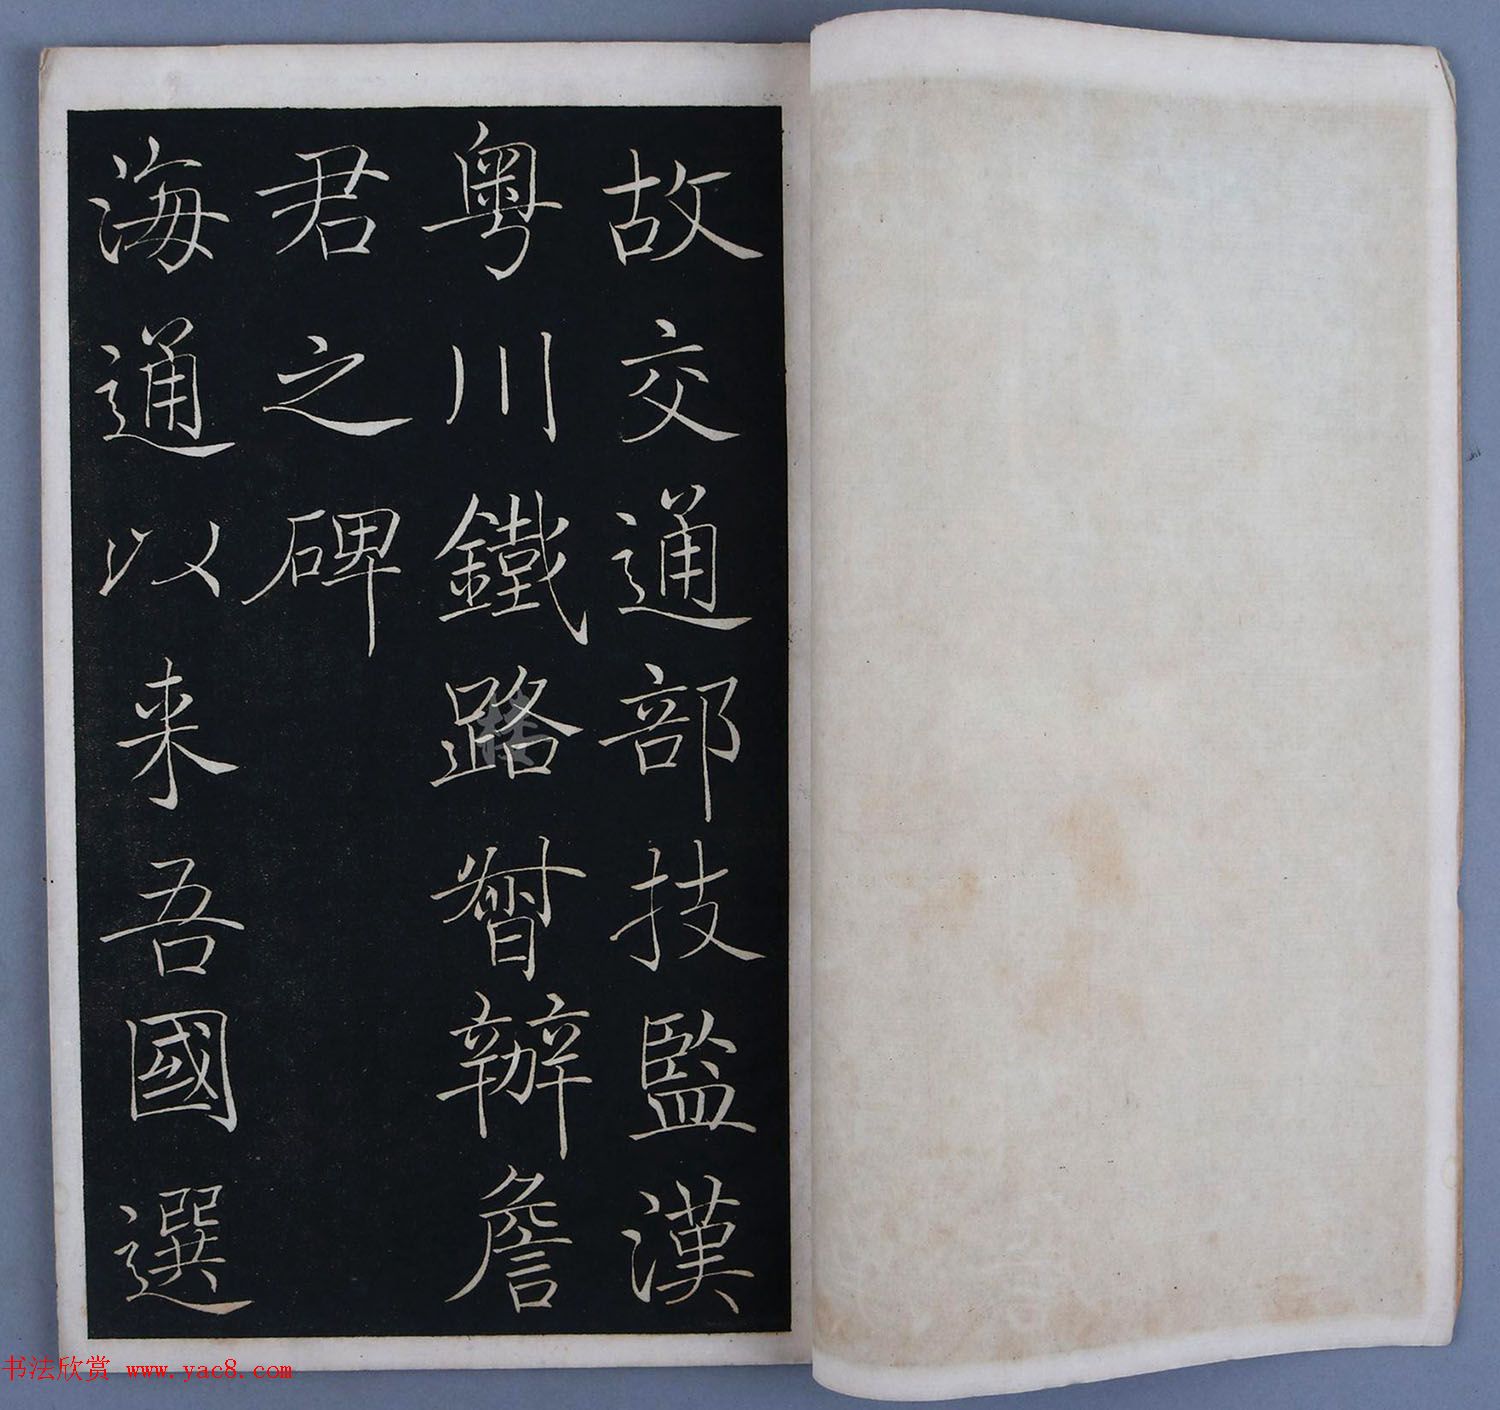 故交通部技監漢
粤川鐵路督辦詹
君之碑
海通以来吾國選
书法欣赏 www.yac8.com